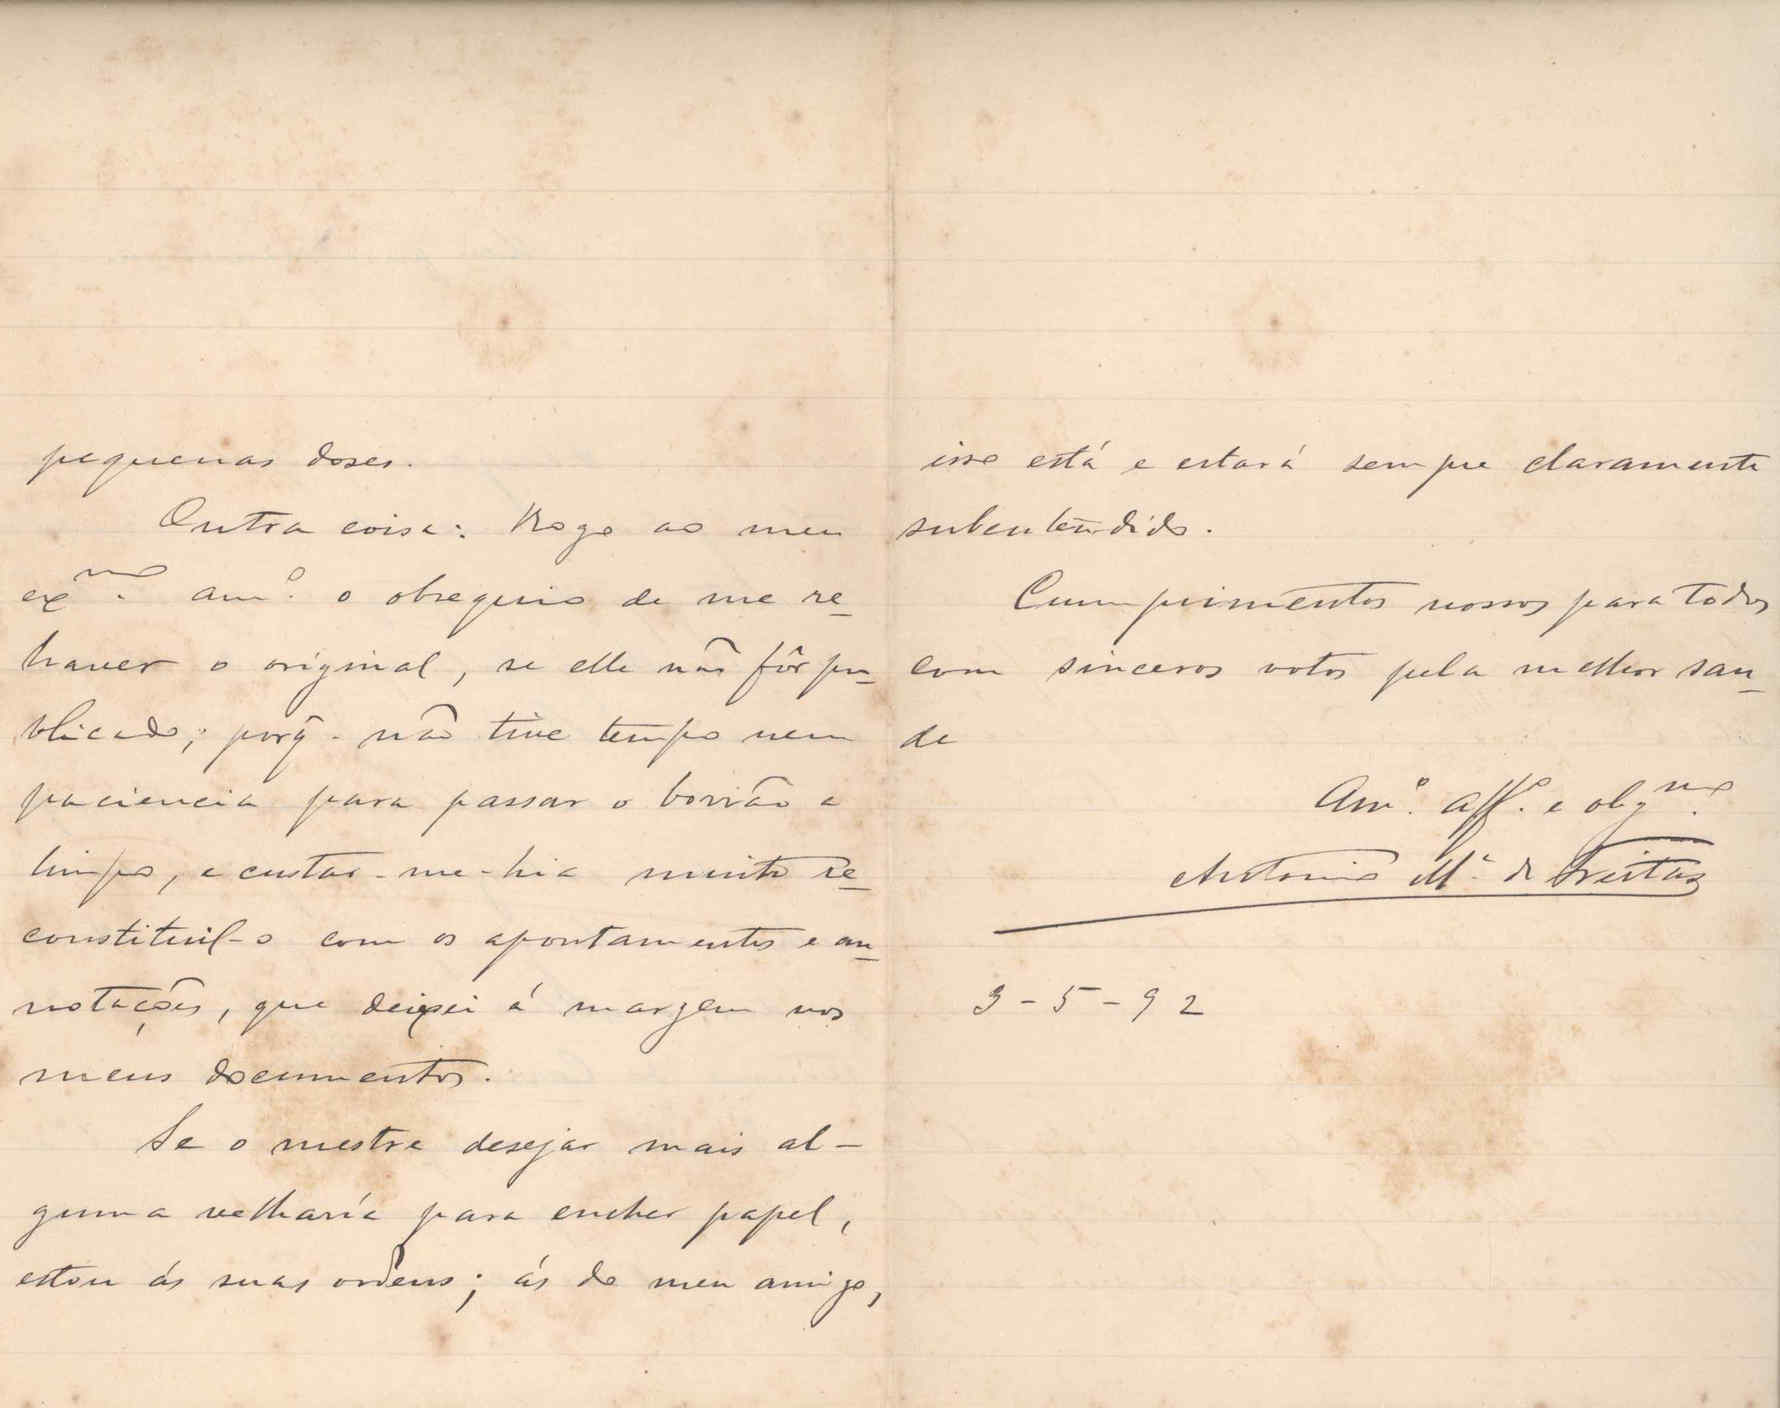 pequenas doses.
Outra coisa: Rogo ao meu
ex.mo am.o o obsequio de me re-
haver o original, se elle não fôr pu-
blicado; porq̃ não tive tempo nem
paciencia para passar o borrão a
limpo, e custar-me-hia muito re-
constituil-o com os apontamentos e an-
notações, que deixei á margem nos
meus documentos.
Se o mestre desejar mais al-
guma velharía para encher papel,
estou ás suas ordens; ás do meu amigo,
isso está e estará sempre claramente
subentendido.
Cumprimentos nossos para todos
com sinceros votos pela melhor sau-
de
Am.o aff.o e obg.mo
Antonio M.a de Freitas
3-5-92